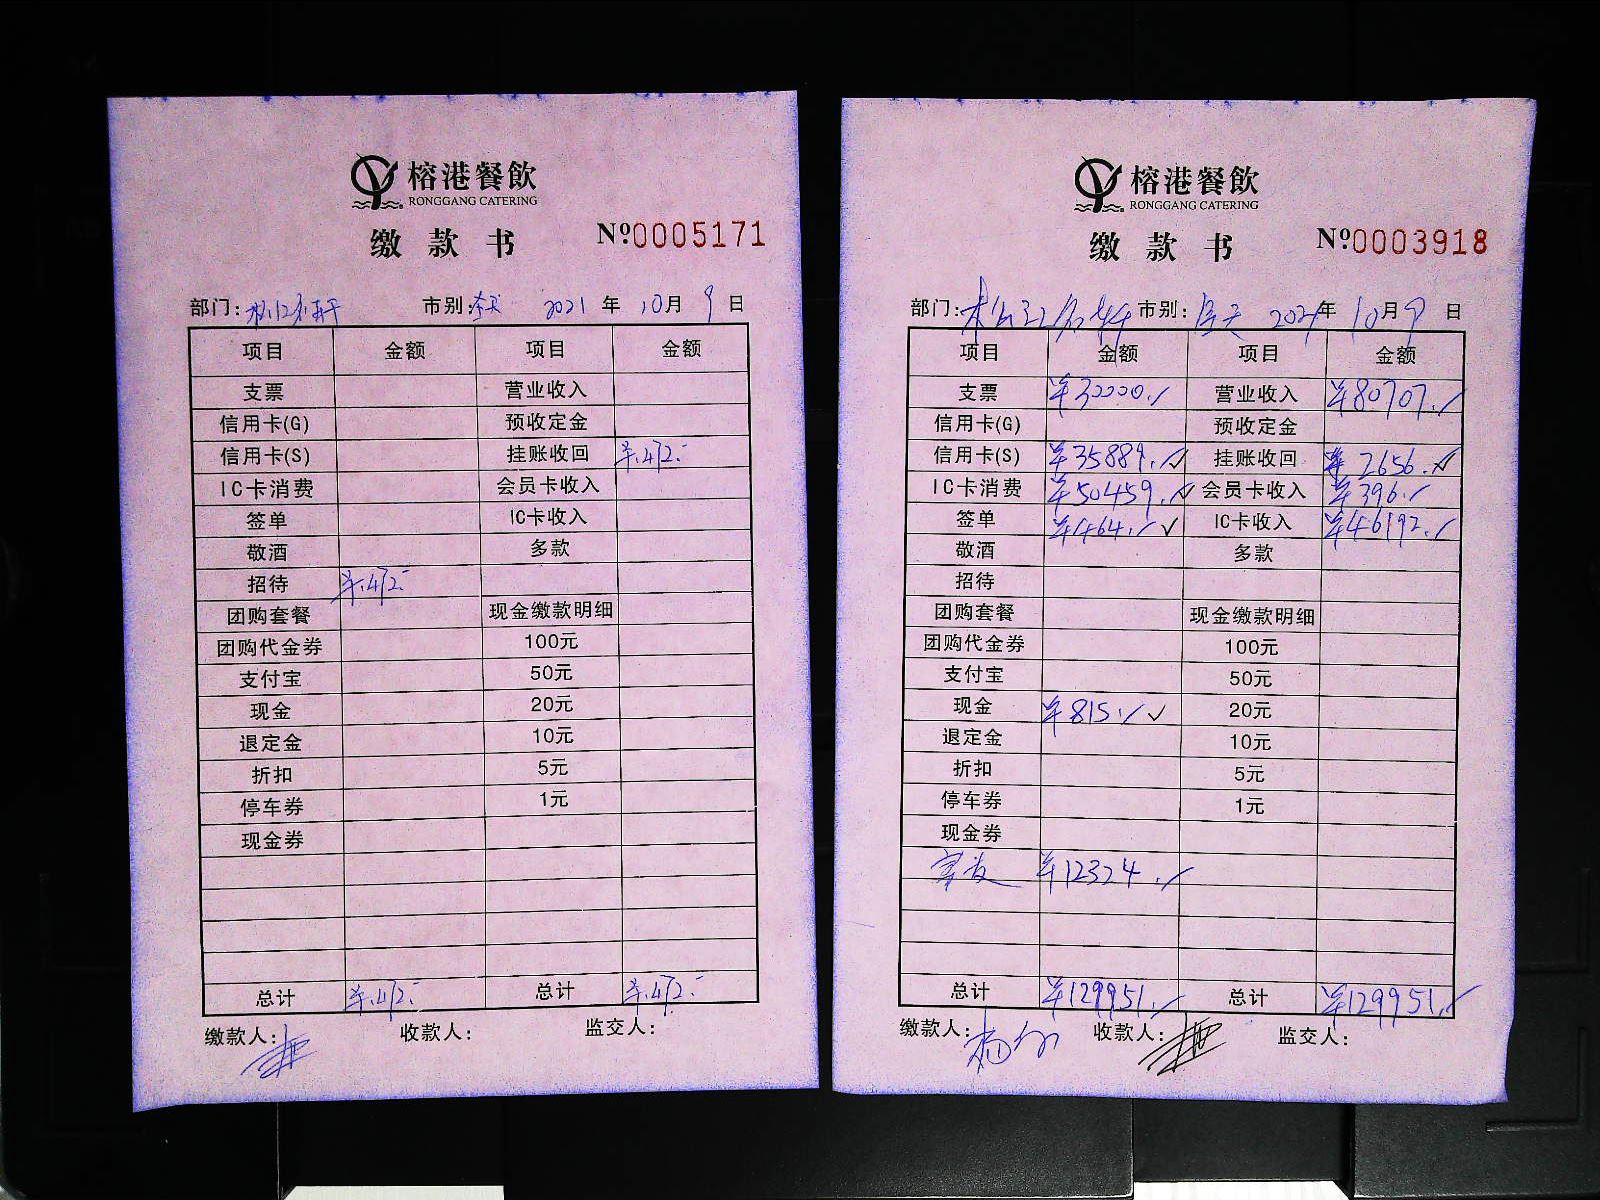 榕港餐飲
RONGGANG CATERING
缴款书
№0005171
部门: 市别: 2021年10月9日
项目 金额 项目 金额
支票 营业收入
信用卡(G) 预收定金
信用卡(S) 挂账收回 ¥472.-
IC卡消费 会员卡收入
签单 IC卡收入
敬酒 多款
招待 ¥472.-
团购套餐 现金缴款明细
团购代金券 100元
支付宝 50元
现金 20元
退定金 10元
折扣 5元
停车券 1元
现金券
总计 ¥472.- 总计 ¥472.-
缴款人: 收款人: 监交人:
榕港餐飲
RONGGANG CATERING
缴款书
№0003918
部门: 市别: 全天 2021年10月9日
项目 金额 项目 金额
支票 ¥30000.- 营业收入 ¥80707.-
信用卡(G) 预收定金
信用卡(S) ¥35889.- 挂账收回 ¥2656.-
IC卡消费 ¥50459.- 会员卡收入 ¥396.-
签单 ¥464.- IC卡收入 ¥46192.-
敬酒 多款
招待
团购套餐 现金缴款明细
团购代金券 100元
支付宝 50元
现金 ¥815.- 20元
退定金 10元
折扣 5元
停车券 1元
现金券
¥12324.-
总计 ¥129951.- 总计 ¥129951.-
缴款人: 收款人: 监交人: